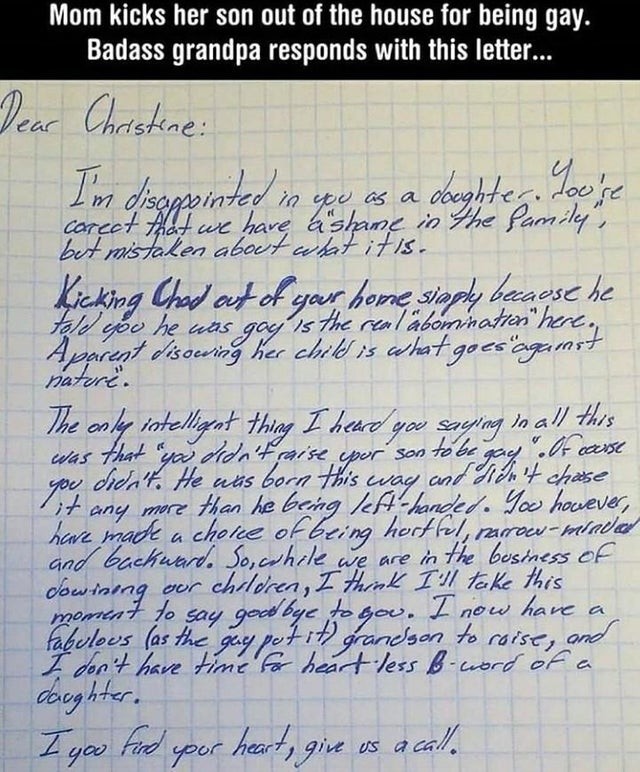 Mom kicks her son out of the house for being gay.
Badass grandpa responds with this letter...
Dear Christine:
I'm disappointed in you as a daughter. You're
corect that we have a "shame in the family",
but mistaken about what it is.
Kicking Chad out of your home simply because he
told you he was gay is the real "abomination" here.
A parent disowing her child is what goes "against
nature".
The only intelligent thing I heard you saying in all this
was that "you didn't raise your son to be gay". Of couse
you didn't. He was born this way and didn't chose
it any more than he being left-handed. You however,
have made a choice of being hurtful, narrow-minded
and backward. So, while we are in the business of
dowining our children, I think I'll take this
moment to say goodbye to you. I now have a
fabulous (as the gay put it) grandson to raise, and
I don't have time for heart-less B-word of a
daughter.
I you find your heart, give us a call.